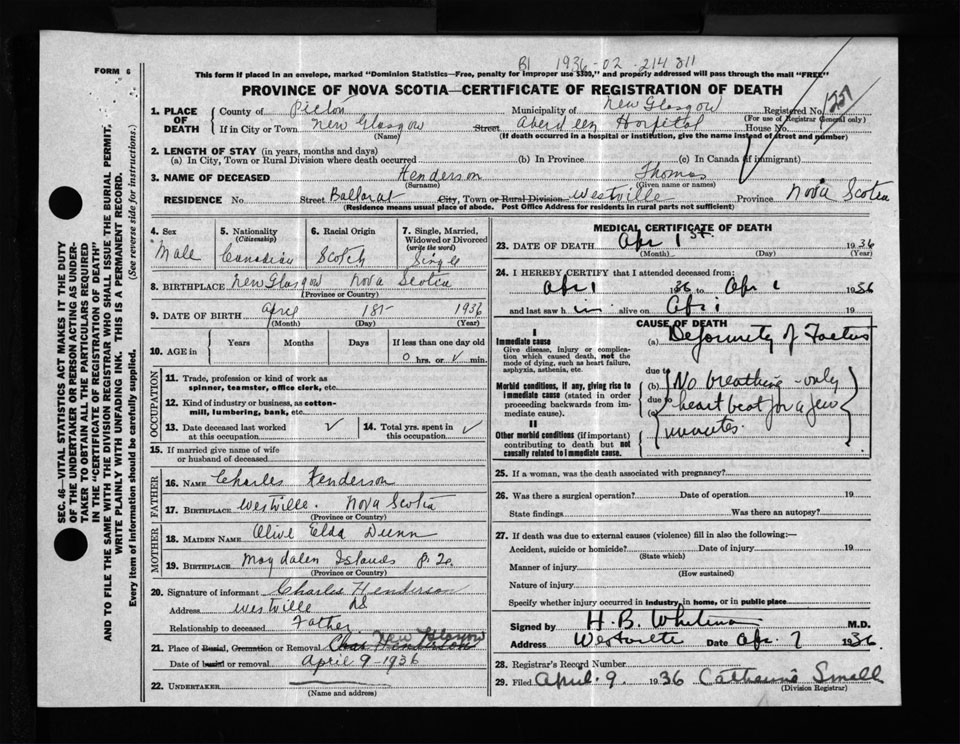 B1 1936-02-214311
FORM 6
This form if placed in an envelope, marked "Dominion Statistics—Free, penalty for improper use $300," and properly addressed will pass through the mail "FREE"
PROVINCE OF NOVA SCOTIA—CERTIFICATE OF REGISTRATION OF DEATH
1. PLACE OF DEATH County of Pictou Municipality of New Glasgow Registered No. 1257
(For use of Registrar General only)
If in City or Town New Glasgow Street Aberdeen Hospital House No.
(Name) (If death occurred in a hospital or institution, give the name instead of street and number)
2. LENGTH OF STAY (in years, months and days)
(a) In City, Town or Rural Division where death occurred (b) In Province (c) In Canada (if immigrant)
3. NAME OF DECEASED Henderson Thomas
(Surname) (Given name or names)
RESIDENCE No. Street Ballarat City, Town or Rural Division Westville Province Nova Scotia
(Residence means usual place of abode. Post Office Address for residents in rural parts not sufficient)
4. Sex Male
5. Nationality (Citizenship) Canadian
6. Racial Origin Scotch
7. Single, Married, Widowed or Divorced (write the word) Single
8. BIRTHPLACE New Glasgow Nova Scotia
(Province or Country)
9. DATE OF BIRTH April 1st 1936
(Month) (Day) (Year)
10. AGE in Years Months Days If less than one day old
0 hrs. or ✓ min.
OCCUPATION
11. Trade, profession or kind of work as spinner, teamster, office clerk, etc.
12. Kind of industry or business, as cotton-mill, lumbering, bank, etc.
13. Date deceased last worked at this occupation ✓ 14. Total yrs. spent in this occupation ✓
15. If married give name of wife or husband of deceased
FATHER
16. NAME Charles Henderson
17. BIRTHPLACE Westville. Nova Scotia
(Province or Country)
MOTHER
18. MAIDEN NAME Olive Elda Dunn
19. BIRTHPLACE Magdalen Islands P.
(Province or Country)
20. Signature of informant Charles Henderson
Address Westville NS
Relationship to deceased Father
21. Place of Burial, Cremation or Removal Chas Henderson New Glasgow
Date of burial or removal April 9-1936
22. UNDERTAKER
(Name and address)
MEDICAL CERTIFICATE OF DEATH
23. DATE OF DEATH Apr 1st 1936
(Month) (Day) (Year)
24. I HEREBY CERTIFY that I attended deceased from:
Apr 1 1936 to Apr 1 1936
and last saw him alive on Apr 1 19
CAUSE OF DEATH
I
Immediate cause
Give disease, injury or complication which caused death, not the mode of dying, such as heart failure, asphyxia, asthenia, etc.
(a) Deformity of Foetus
due to
Morbid conditions, if any, giving rise to immediate cause (stated in order proceeding backwards from immediate cause).
(b) No breathing - only
due to heart beat for a few
(c) minutes.
II
Other morbid conditions (if important) contributing to death but not causally related to immediate cause.
25. If a woman, was the death associated with pregnancy?
26. Was there a surgical operation? Date of operation 19
State findings Was there an autopsy?
27. If death was due to external causes (violence) fill in also the following:—
Accident, suicide or homicide? Date of injury 19
(State which)
Manner of injury
(How sustained)
Nature of injury
Specify whether injury occurred in industry, in home, or in public place
Signed by H. B. Whitman M.D.
Address Westville Date Apr. 7 1936
28. Registrar's Record Number
29. Filed April 9. 1936 Catharine Small
(Division Registrar)
SEC. 46—VITAL STATISTICS ACT MAKES IT THE DUTY
OF THE UNDERTAKER OR PERSON ACTING AS UNDER-
TAKER TO OBTAIN ALL THE PARTICULARS REQUIRED
IN THE "CERTIFICATE OF REGISTRATION OF DEATH"
AND TO FILE THE SAME WITH THE DIVISION REGISTRAR WHO SHALL ISSUE THE BURIAL PERMIT.
WRITE PLAINLY WITH UNFADING INK. THIS IS A PERMANENT RECORD.
Every item of information should be carefully supplied. (See reverse side for instructions.)